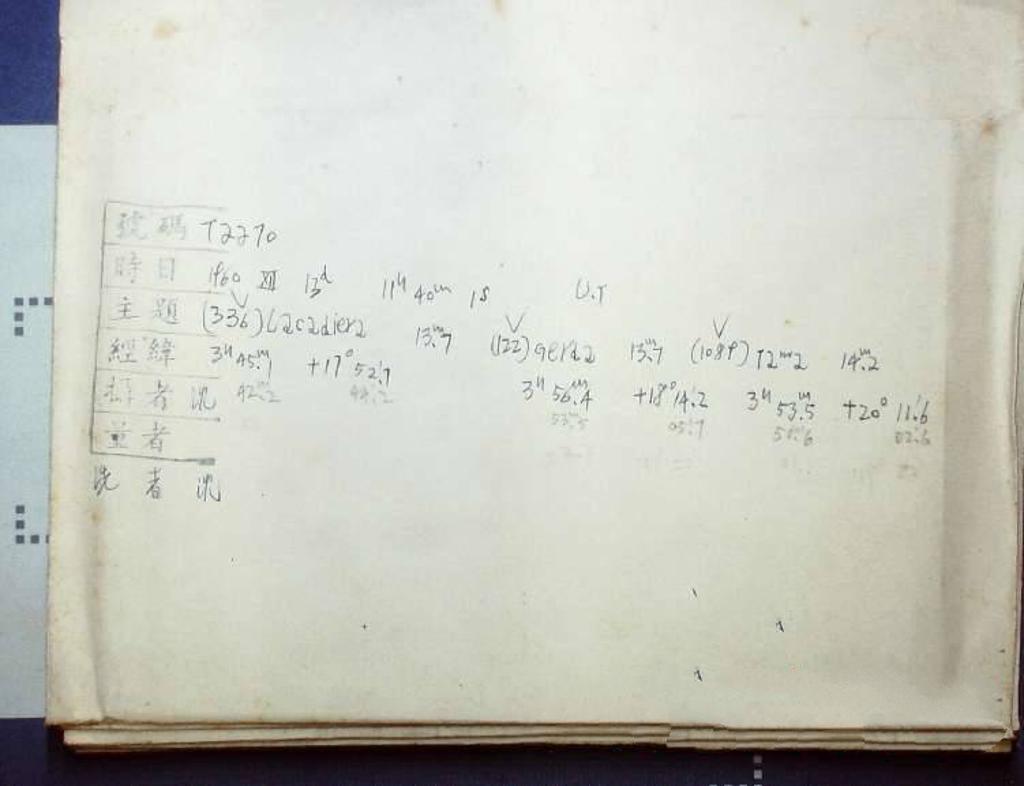 號碼 T2270
時日 1960 XII 13d 11h 40m 1s U.T
主題 (336) Lacadiera 13m.7 (122) gerda 13m.7 (1089) Tama 14m.2
經緯 3h 45m.1 +17° 52'.1 3h 56m.4 +18° 14'.2 3h 53m.5 +20° 11'.6
42m.2 44'.2 53m.5 05'.7 02'.6
攝者 沈
並者
洗者 沈